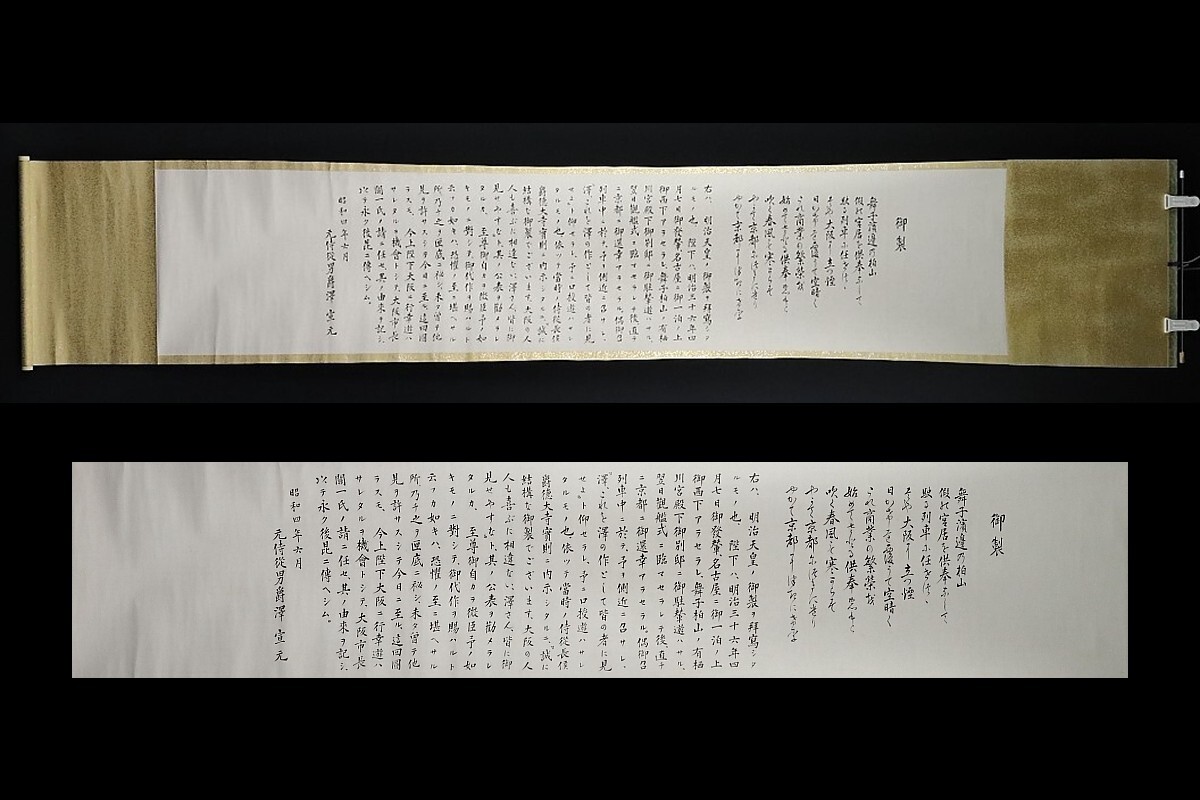 御製
舞子濱邊乃柏山
假の宮居を供奉して
馳る列車に任せ
大阪に立つ煙
日の
これ商業の繁榮
始めて供奉
吹く春風も寒からそ
京都に
やかて京都
右ハ、明治天皇ノ御製ヲ拜寫シタ
ルモノ也、陛下ハ、明治三十六年四
月七日御發輦名古屋ニ御一泊ノ上
御西下アラセラレ舞子柏山ノ有栖
川宮殿下御別邸ニ御駐輦遊ハサル、
翌日觀艦式ニ臨マセラレテ後、直チ
ニ京都ニ御還幸アラセラル。偶御召
列車中ニ於テ、予ヲ側近ニ召サレ、
澤、これを澤の作として皆の者に見
せよト仰セラレ、予ニ口授遊ハサレ
タルモノ也、依ツテ當時ノ侍從長侯
爵德大寺實則ニ内示シタルニ、誠に
結構な御製でございます、大阪の人
人も喜ぶに相違ない、澤さん皆に御
見せやすなト、其ノ公表ヲ勸メラレ
タルカ、至尊御自カラ微臣予ノ如
キモノニ對シテ、御代作ヲ賜ハルト
云フカ如キハ、恐懼ノ至ニ堪ヘサル
所乃チ之ヲ匣底ニ秘シ未タ曾テ他
見ヲ許サスシテ今日ニ至ル、這回圖
ラスモ、今上陛下大阪ニ行幸遊ハ
サレタルヲ機會トシテ、大阪市長
關一氏ノ請ニ任セ、其ノ由來ヲ記シ、
以テ永ク後昆ニ傳ヘシム。
昭和四年六月
元侍從男爵澤宣元